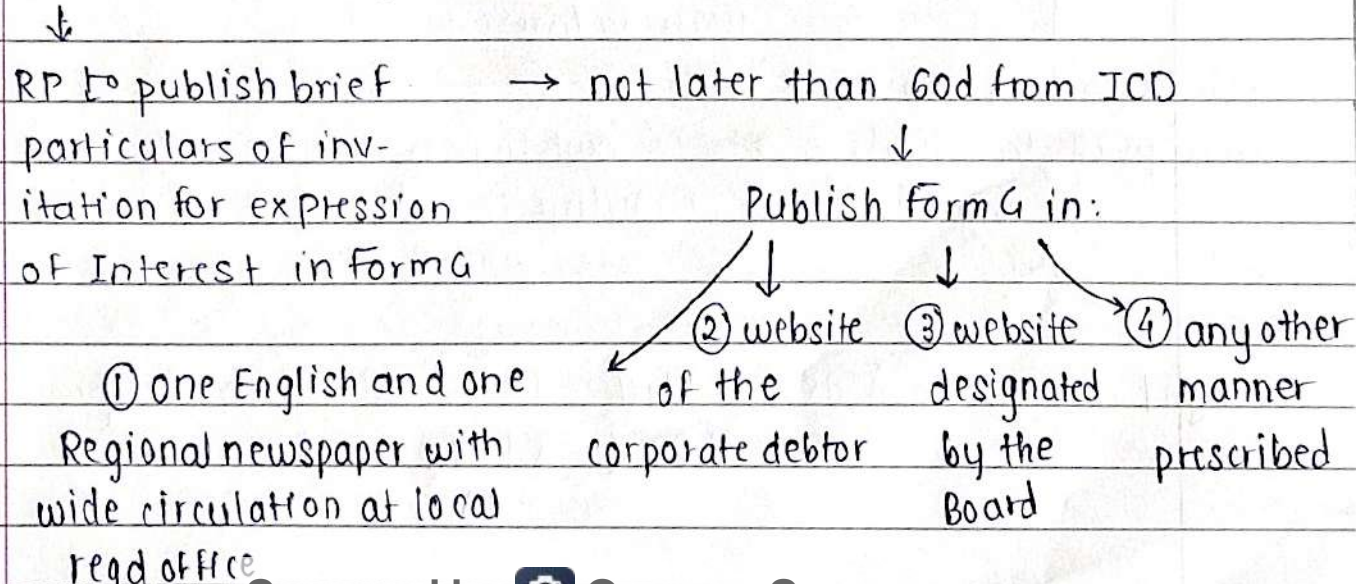 RP to publish brief → not later than 60d from ICD
particulars of inv-
itation for expression
of Interest in Form G
Publish Form G in:
① one English and one
Regional newspaper with
wide circulation at local
regd office
② website
of the
corporate debtor
③ website
designated
by the
Board
④ any other
manner
prescribed